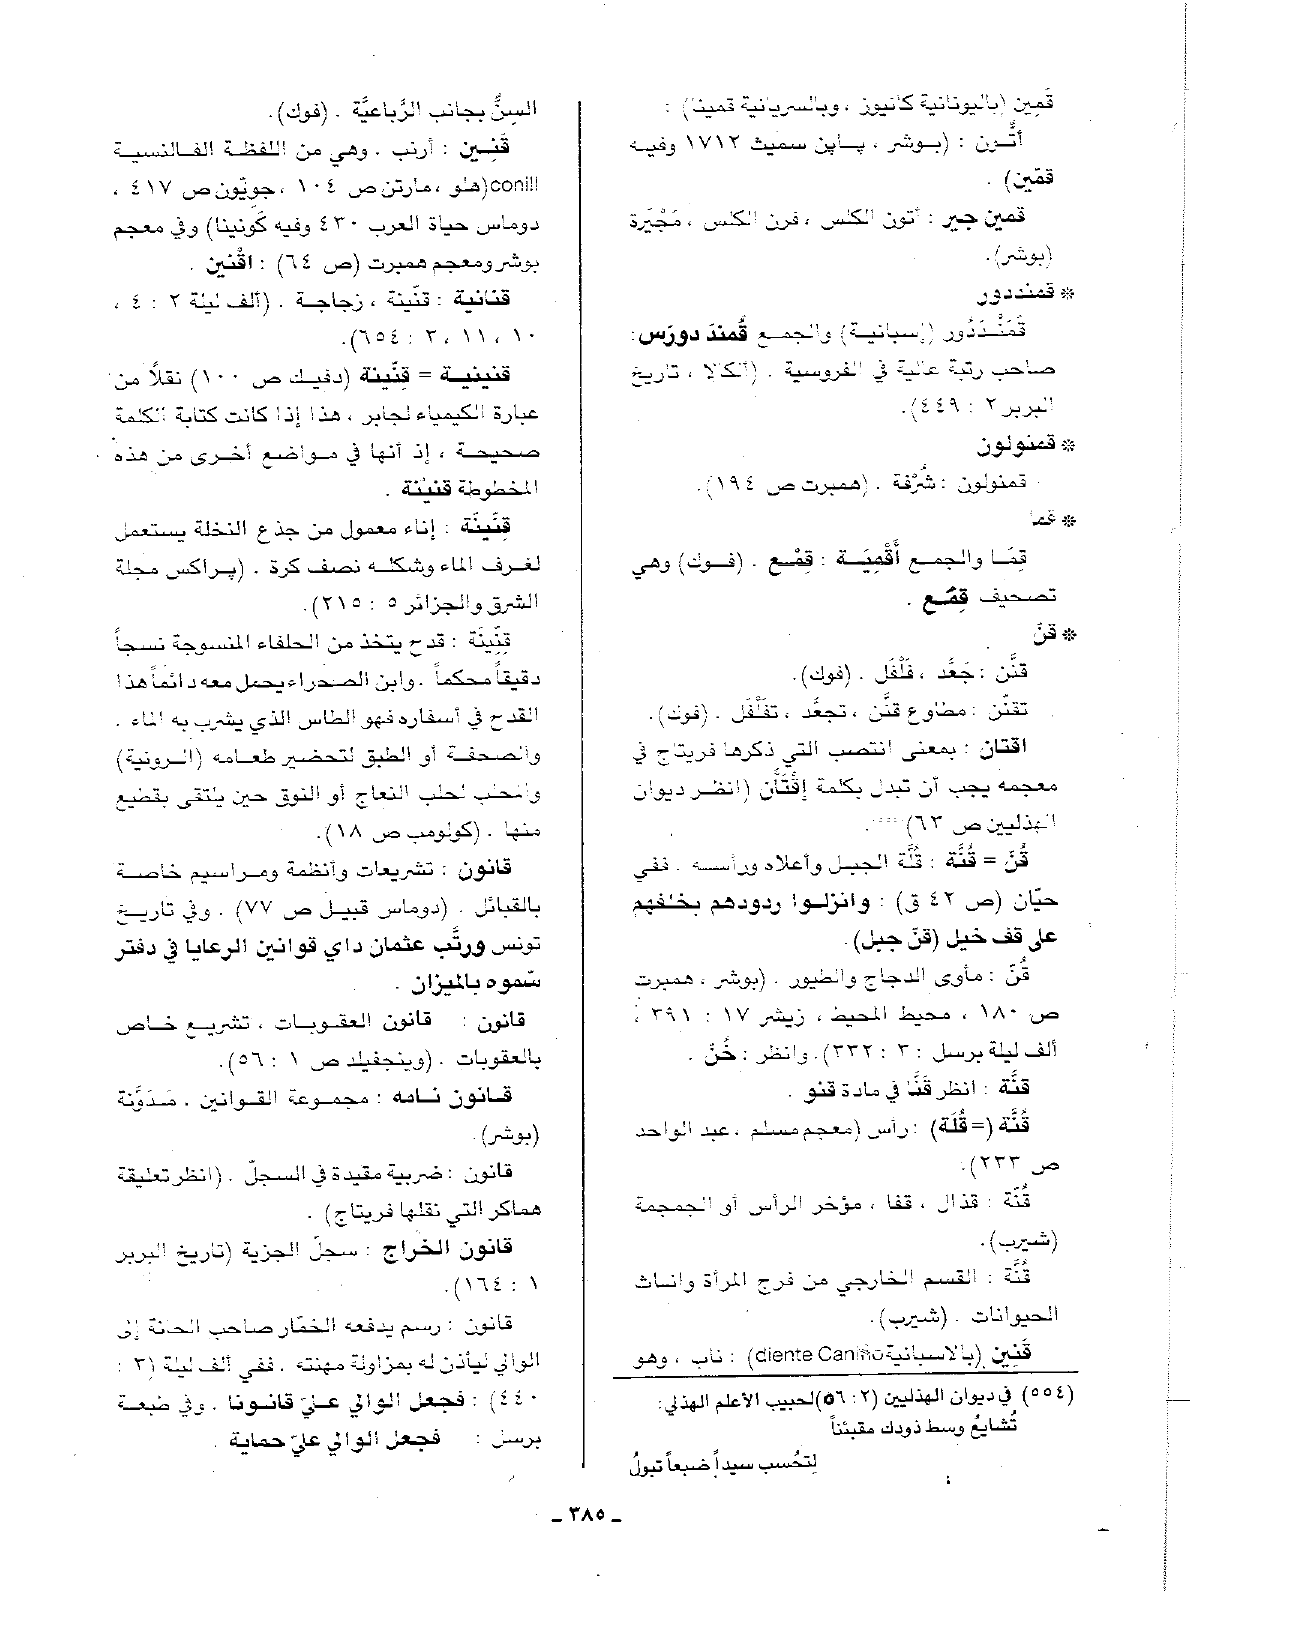 قَمِين (باليونانية كانيون ، وبالسريانية قمينا) :
أتُّون : (بوشر ، پاين سميث ١٧١٢ وفيه
قمّين) .
قمين جير : أتون الكلس ، فرن الكلس ، مَجْيَرة
(بوشر).
* قمندور
قُمَنْدَدُور (إسبانية) والجمع قُمندَ دورَس:
صاحب رتبة عالية في الفروسية . (ألكالا ، تاريخ
البربر ٢ : ٤٤٩).
* قمنولون
قمنولون : شُرْفة . (همبرت ص ١٩٤).
* قما
قِمَا والجمع أَقْمِيَة : قِمْع . (فوك) وهي
تصحيف قِمْع .
* قنّ
قنَّن : جَعَّد ، فَلْفَل . (فوك).
تقنّن : مطاوع قنَّن ، تجعَّد ، تَفَلْفَل . (فوك).
اقتان : بمعنى انتصب التي ذكرها فريتاج في
معجمه يجب أن تبدل بكلمة إقْتَأَن (انظر ديوان
الهذليين ص ٦٣)
قُنّ = قُنَّة : قلَّة الجبل وأعلاه ورأسه . ففي
حيّان (ص ٤٢ ق) : وانزلوا ردودهم بخلفهم
على قف خيل (قنّ جبل).
قُنّ : مأوى الدجاج والطيور . (بوشر ، همبرت
ص ١٨٠ ، محيط المحيط ، زيشر ١٧ : ٣٩١ ،
ألف ليلة برسل : ٣ : ٢٣٢). وانظر : خُنّ .
قَنَّة : انظر قَنَّا في مادة قنو .
قُنَّة (=قُلَّة) : رأس (معجم مسلم ، عبد الواحد
ص ٢٣٣).
قُنَّة : قذال ، قفا ، مؤخر الرأس أو الجمجمة
(شيرب).
قُنَّة : القسم الخارجي من فرج المرأة واناث
الحيوانات . (شيرب).
قَنِين (بالاسبانية diente Caniño) : ناب ، وهو
(٥٥٤) في ديوان الهذليين (٢ : ٥٦) لحبيب الأعلم الهذلي:
تُشايعُ وسط ذودك مقبئنا
لتحُسب سيداً ضبعاً تبولُ
السنُّ بجانب الرَّباعيَّة . (فوك).
قَنِين : أرنب . وهي من اللفظة الفالنسية
conill (هلو ، مارتن ص ١٠٤ ، جويّون ص ٤١٧ ،
دوماس حياة العرب ٤٣٠ وفيه كَونينا) وفي معجم
بوشر ومعجم همبرت (ص ٦٤) : اقْنين .
قنانية : قنِّينة ، زجاجة . (ألف ليلة ٢ : ٤ ،
١٠ ، ١١ ، ٣ : ٦٥٤).
قنينية = قنِّينة (دفيك ص ١٠٠) نقلاً من
عبارة الكيمياء لجابر ، هذا إذا كانت كتابة الكلمة
صحيحة ، إذ أنها في مواضع أخرى من هذه
المخطوطة قنينة .
قِنِّينَة : إناء معمول من جذع النخلة يستعمل
لغرف الماء وشكله نصف كرة . (پراكس مجلة
الشرق والجزائر ٥ : ٢١٥).
قِنِّينَة : قدح يتخذ من الحلفاء المنسوجة نسجاً
دقيقاً محكماً . وابن الصحراء يحمل معه دائماً هذا
القدح في أسفاره فهو الطاس الذي يشرب به الماء .
والصحفة أو الطبق لتحضير طعامه (الروينة)
والمحلب لحلب النعاج أو النوق حين يلتقى بقطيع
منها . (كولومب ص ١٨).
قانون : تشريعات وأنظمة ومراسيم خاصة
بالقبائل . (دوماس قبيل ص ٧٧) . وفي تاريخ
تونس ورتَّب عثمان داي قوانين الرعايا في دفتر
سَّموه بالميزان .
قانون : قانون العقوبات ، تشريع خاص
بالعقوبات . (وينجفيلد ص ١ : ٥٦).
قانون نامه : مجموعة القوانين . مَدوَّنة
(بوشر).
قانون : ضريبة مقيدة في السجلّ . (انظر تعليقة
هماكر التي نقلها فريتاج) .
قانون الخراج : سجلّ الجزية (تاريخ البربر
١ : ١٦٤).
قانون : رسم يدفعه الخمّار صاحب الحانة إلى
الوالي ليأذن له بمزاولة مهنته . ففي ألف ليلة (٣ :
٤٤٠) : فجعل الوالي عليّ قانونا . وفي طبعة
برسل : فجعل الوالي عليّ حماية .
ـ ٣٨٥ ـ